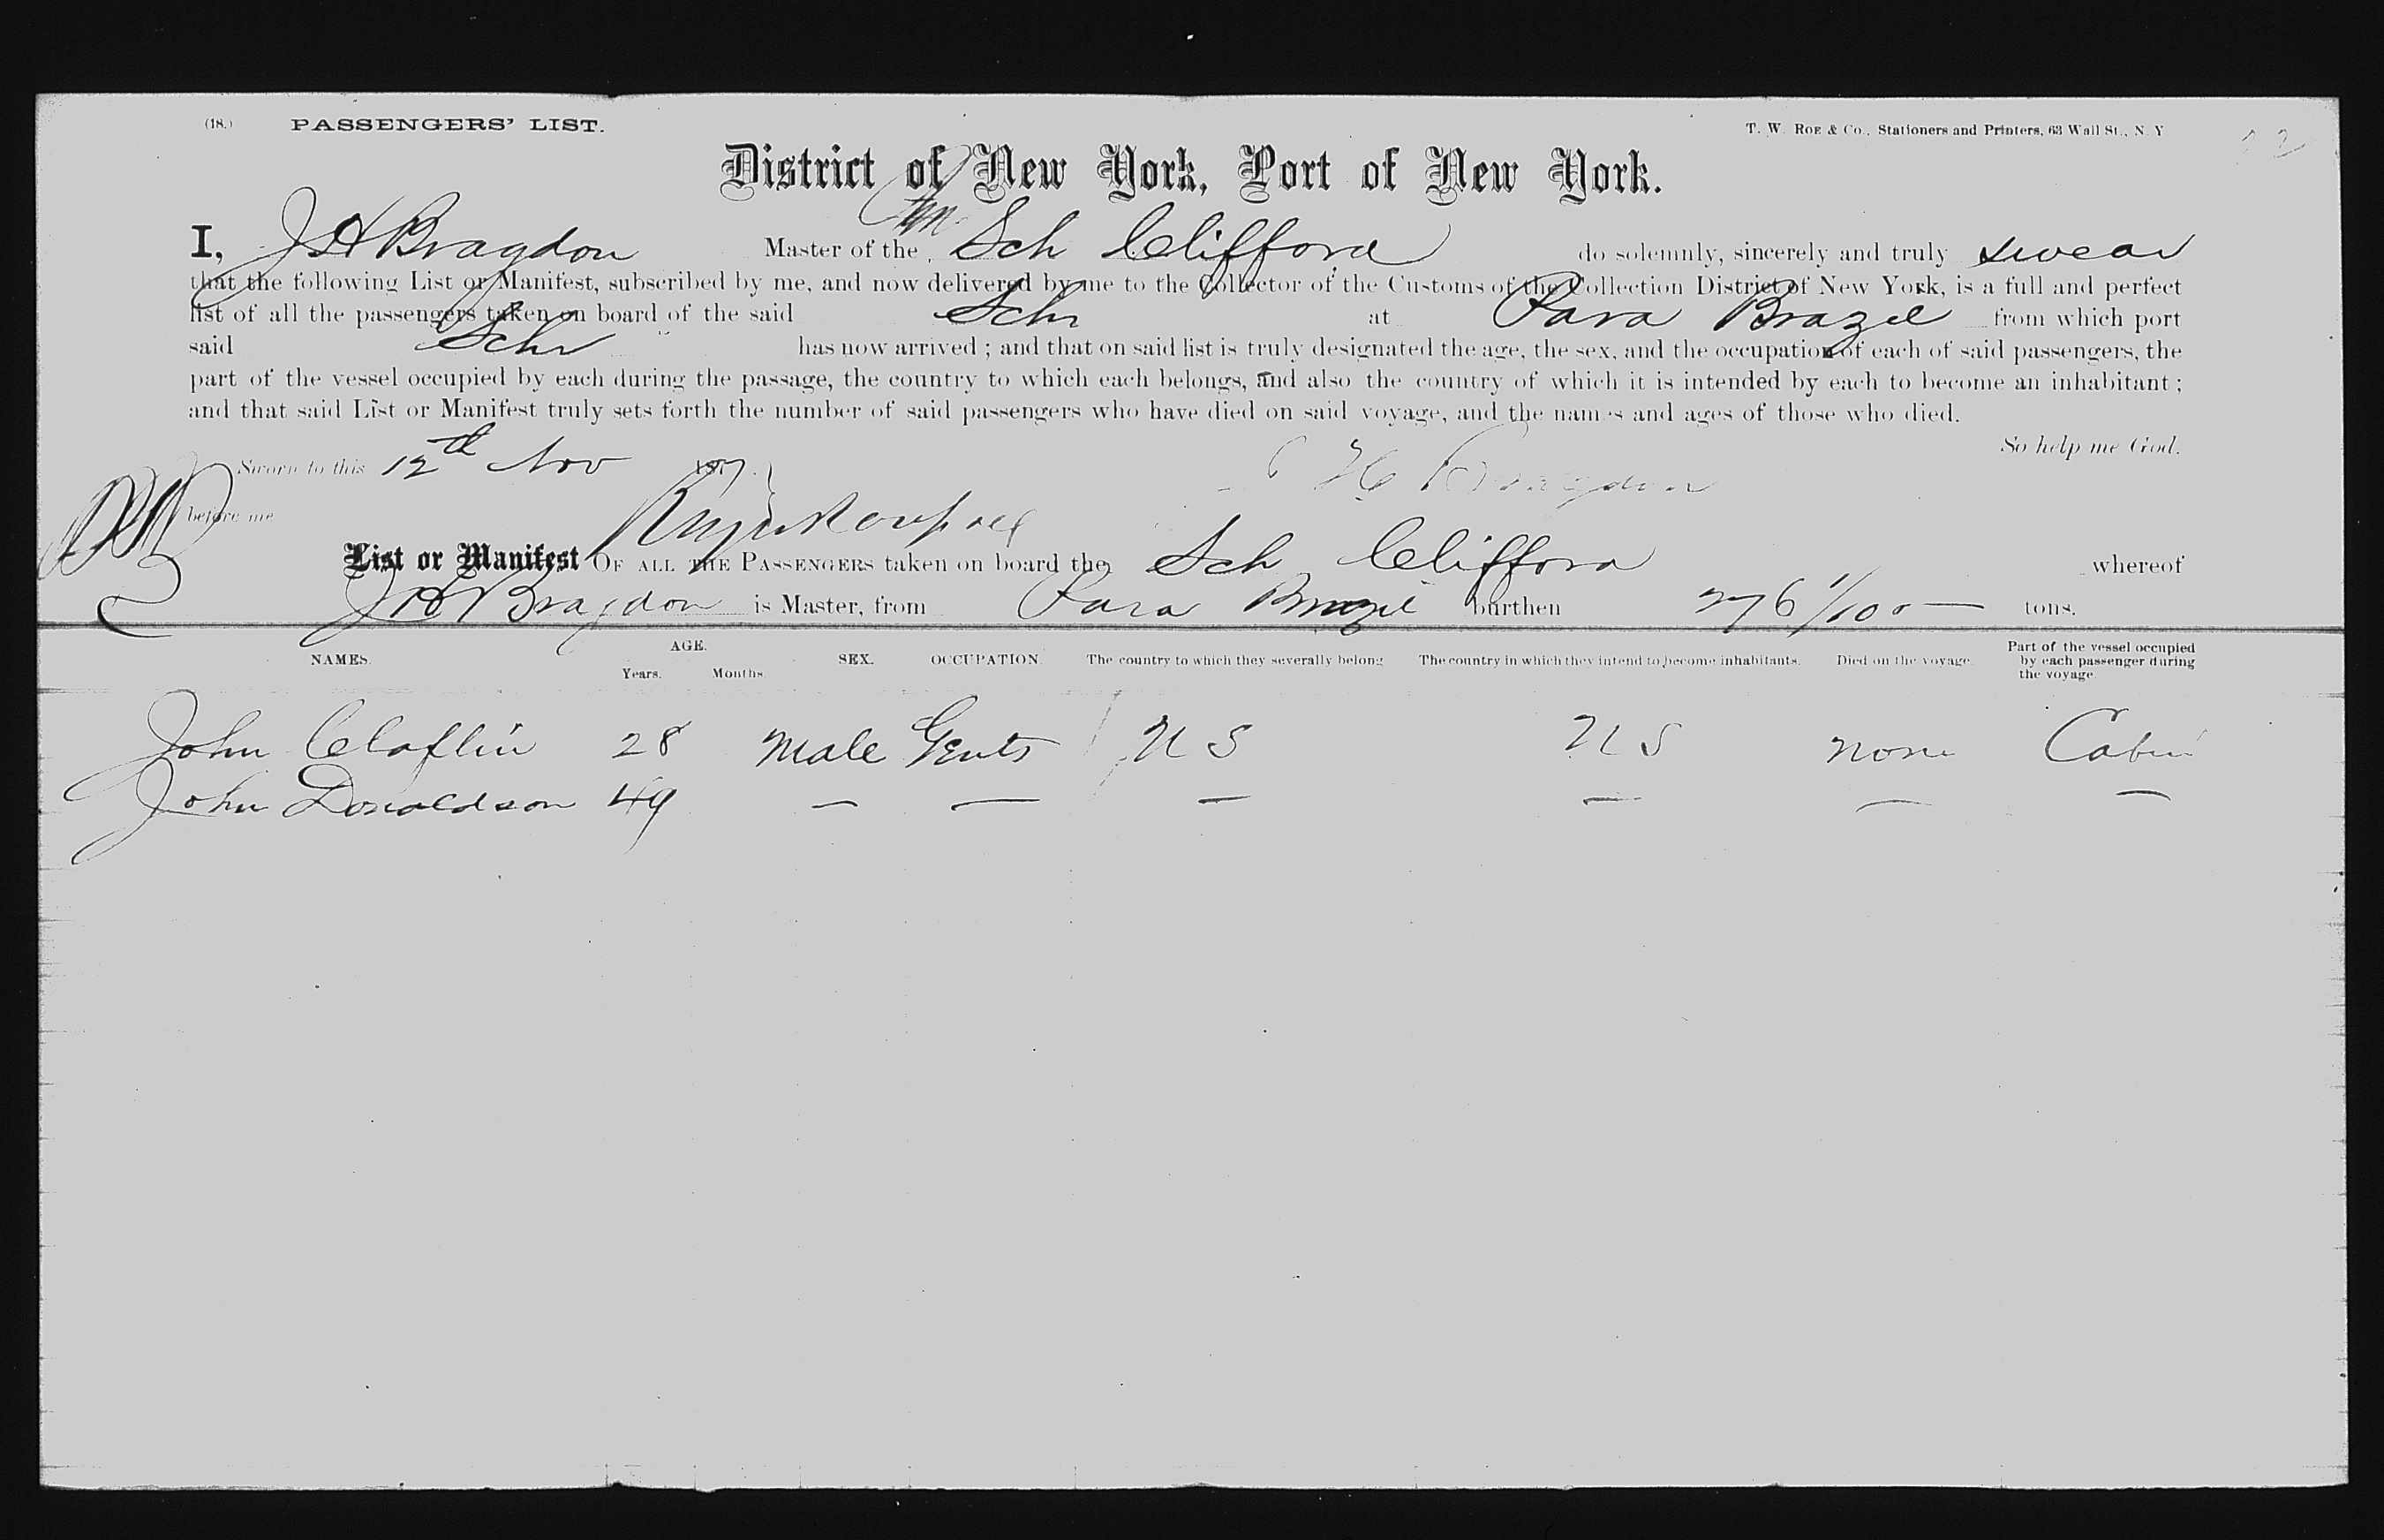 (18.) PASSENGERS' LIST.
T. W. ROE & Co., Stationers and Printers, 63 Wall St., N. Y
District of New York, Port of New York.
I, J H Bragdon Master of the Am Sch Clifford do solemnly, sincerely and truly swear
that the following List or Manifest, subscribed by me, and now delivered by me to the Collector of the Customs of the Collection District of New York, is a full and perfect
list of all the passengers taken on board of the said Schr at Para Brazil from which port
said Schr has now arrived ; and that on said list is truly designated the age, the sex, and the occupation of each of said passengers, the
part of the vessel occupied by each during the passage, the country to which each belongs, and also the country of which it is intended by each to become an inhabitant ;
and that said List or Manifest truly sets forth the number of said passengers who have died on said voyage, and the names and ages of those who died.
So help me God.
Sworn to this 12th Nov 187
J H Bragdon
before me
List or Manifest OF ALL THE PASSENGERS taken on board the Sch Clifford whereof
J H Bragdon is Master, from Para Brazil burthen 276 1/100 — tons.
NAMES. AGE. Years. Months. SEX. OCCUPATION. The country to which they severally belong The country in which they intend to become inhabitants. Died on the voyage. Part of the vessel occupied by each passenger during the voyage.
John Claflin 28 Male Gents U S U S none Cabin
John Donaldson 49 — — — — — —